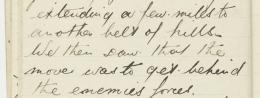 extending a few mills to
another belt of hills.
We then saw that the
move was to get behind
the enemies forces.